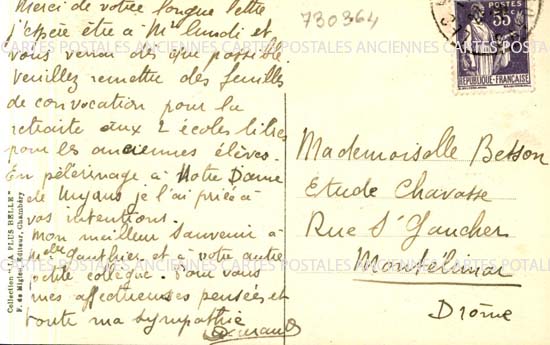 Merci de votre longue lettre
j'espère être à Mr lundi et
vous verrai dès que possible
veuillez remettre des feuilles
de convocation pour la
retraite aux 2 écoles libres
pour les anciennes élèves.
En pèlerinage à Notre Dame
de Myans je l'ai priée à
vos intentions.
Mon meilleur souvenir à
Melle Gauthier et à votre autre
petite collègue. Pour vous
mes affectueuses pensées et
toute ma sympathie
730364
55c
POSTES
REPUBLIQUE-FRANÇAISE
Mademoiselle Besson
Etude Chavasse
Rue St Gaucher
Montélimar
Drôme
Collection "LA PLUS BELLE"
Editeur, Chambéry
CARTES POSTALES ANCIENNES CARTES POSTALES ANCIENNES CARTES POSTALES